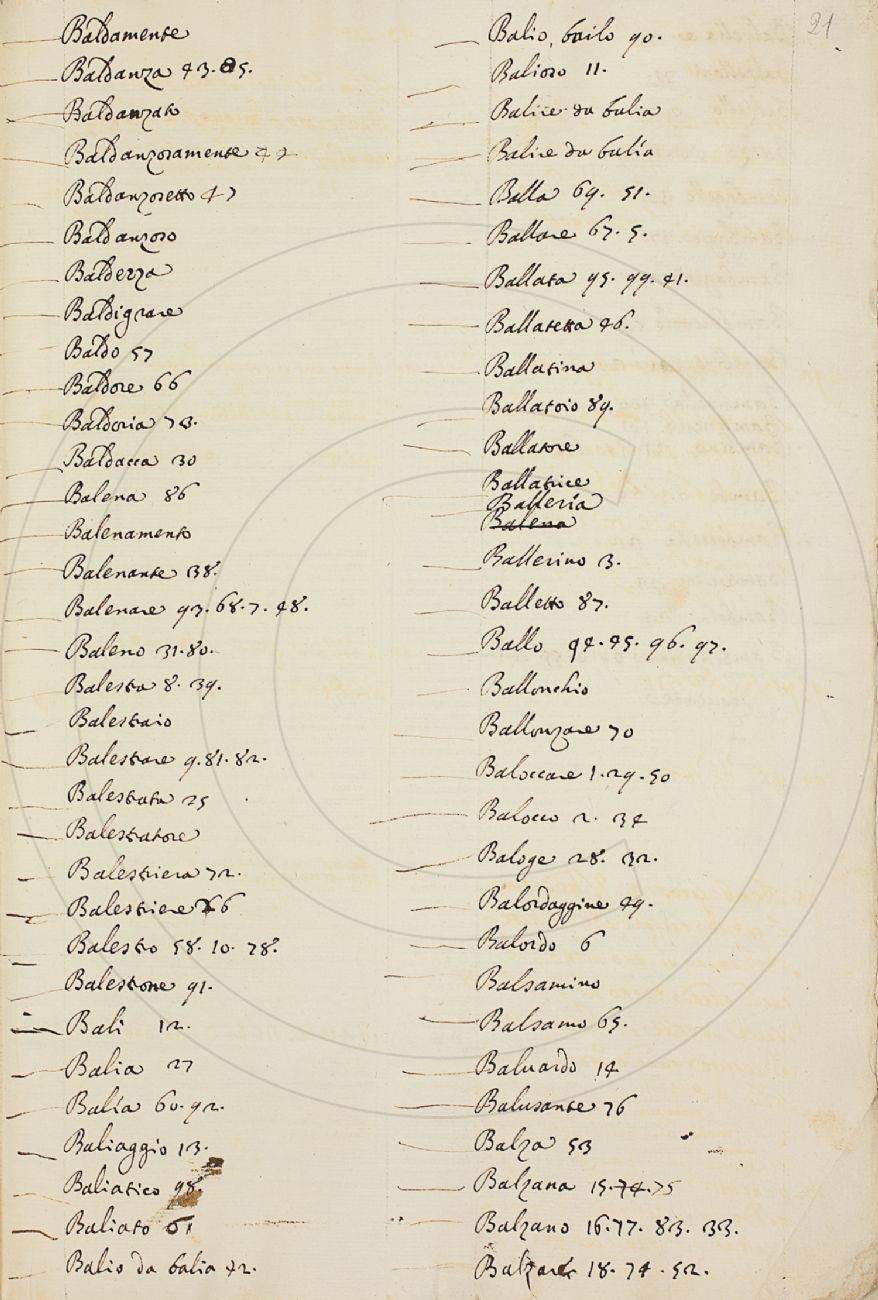 21
Baldamente
Baldanza 43. 85.
Baldanzato
Baldanzosamente 42
Baldanzosetto 47
Baldanzoso
Baldezza
Baldigrare
Baldo 57
Baldore 66
Baldoria 73.
Baldacca 30
Balena 86
Balenamento
Balenante 38.
Balenare 93. 68. 7. 48.
Baleno 31. 80.
Balestra 8. 39.
Balestraio
Balestrare 9. 81. 82.
Balestrata 25
Balestratore
Balestriera 72.
Balestriere 26
Balestro 58. 10. 78.
Balestrone 91.
Bali 12.
Balia 27
Balía 60. 92.
Baliaggio 13.
Baliatico 98.
Baliato 61
Balio da balia 42.
Balio, bailo 90.
Balioso 11.
Balire da balia
Balire da balía
Balla 69. 51.
Ballare 67. 5.
Ballata 95. 99. 41.
Ballatetta 46.
Ballatina
Ballatoio 89.
Ballatore
Ballatrice
Balleria
Balena
Ballerino 3.
Balletto 87.
Ballo 94. 45. 96. 97.
Ballonchio
Ballonzare 70
Baloccare 1. 29. 50
Balocco 2. 34
Baloge 28. 32.
Balordaggine 49.
Balordo 6
Balsamino
Balsamo 65.
Baluardo 14
Balusante 76
Balza 53
Balzana 15. 74. 75
Balzano 16. 77. 83. 33.
Balzare 18. 74. 52.